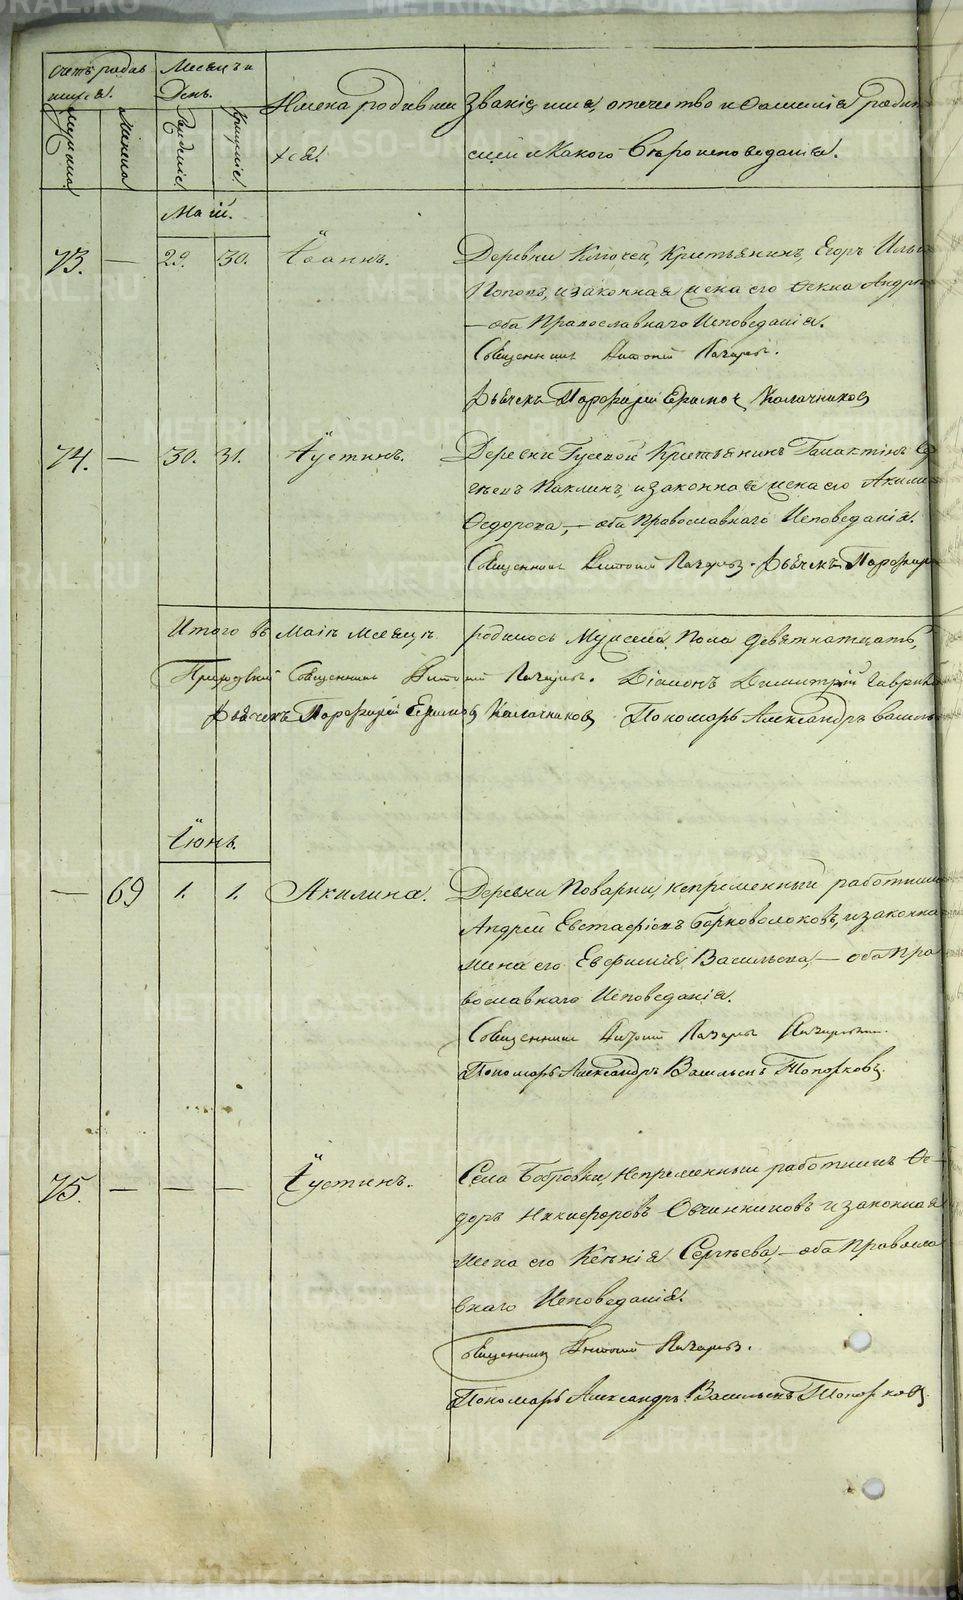 Счетъ родив
шихся.
Мѣсяцъ и
День.
Имена родивши
хся.
Званіе, имя, отечество и фамилія родит
елей и какого вѣроисповеданія.
Мужеска
Женска
Рожденіе
Крещеніе
Маій.
73. — 29. 30. Іоаннъ. Деревни Ключей, Крестьянинъ, Егоръ Ильи
Поповъ, и законная жена его Андре
— оба Православнаго Исповеданія.
Священникъ Лазаревъ.
Дьячекъ Порфирій Ефимовъ Калачниковъ
74. — 30. 31. Іустинъ. Деревни Гусевой Крестьянинъ Галактіонъ
Паклинъ, и законная жена его Акили
Федорова, — оба Православнаго Исповеданія.
Священникъ Лазаревъ. Дьячекъ Порфир
Итого въ Маіѣ Месяцѣ родилось Мужеска Пола девятнатцать,
Священникъ Лазаревъ. Діаконъ Димитрій Гаврил
Дьячекъ Порфирій Ефимовъ Калачниковъ Пономарь Александръ Василь
Іюнь.
— 69 1. 1. Акилина. Деревни Поварни, непременный работникъ
Андрей Евстафіевъ Чорноволоковъ, и законна
жена его Евфимія Васильева, — оба Пра
вославнаго Исповеданія.
Священникъ Лазаревъ
Пономарь Александръ Васильевъ Топорковъ.
75. — — — Іустинъ. Села Бобровки, Непременный работникъ Фе-
доръ Никифоровъ Овчинниковъ и законная
жена его Ксенія Сергѣева, — оба Правосла
внаго Исповеданія.
Священникъ Лазаревъ.
Пономарь Александръ Васильевъ Топорковъ.
METRIKI.GASO-URAL.RU